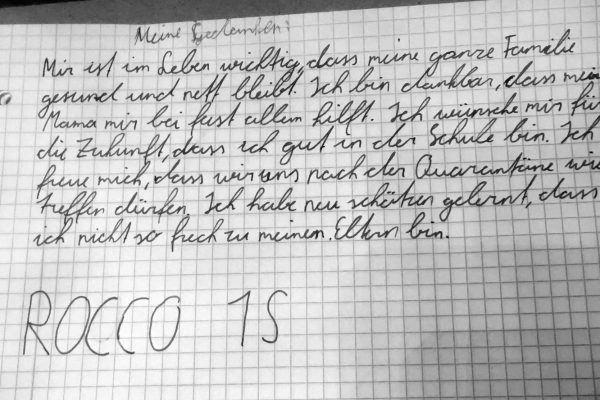 Meine Gedanken:
Mir ist im Leben wichtig, dass meine ganze Familie
gesund und nett bleibt. Ich bin dankbar, dass mein
Mama mir bei fast allem hilft. Ich wünsche mir für
die Zukunft, dass ich gut in der Schule bin. Ich
freue mich, dass wir uns nach der Quarantäne wie
treffen dürfen. Ich habe neu schätzen gelernt, dass
ich nicht so frech zu meinen Eltern bin.
ROCCO 1S